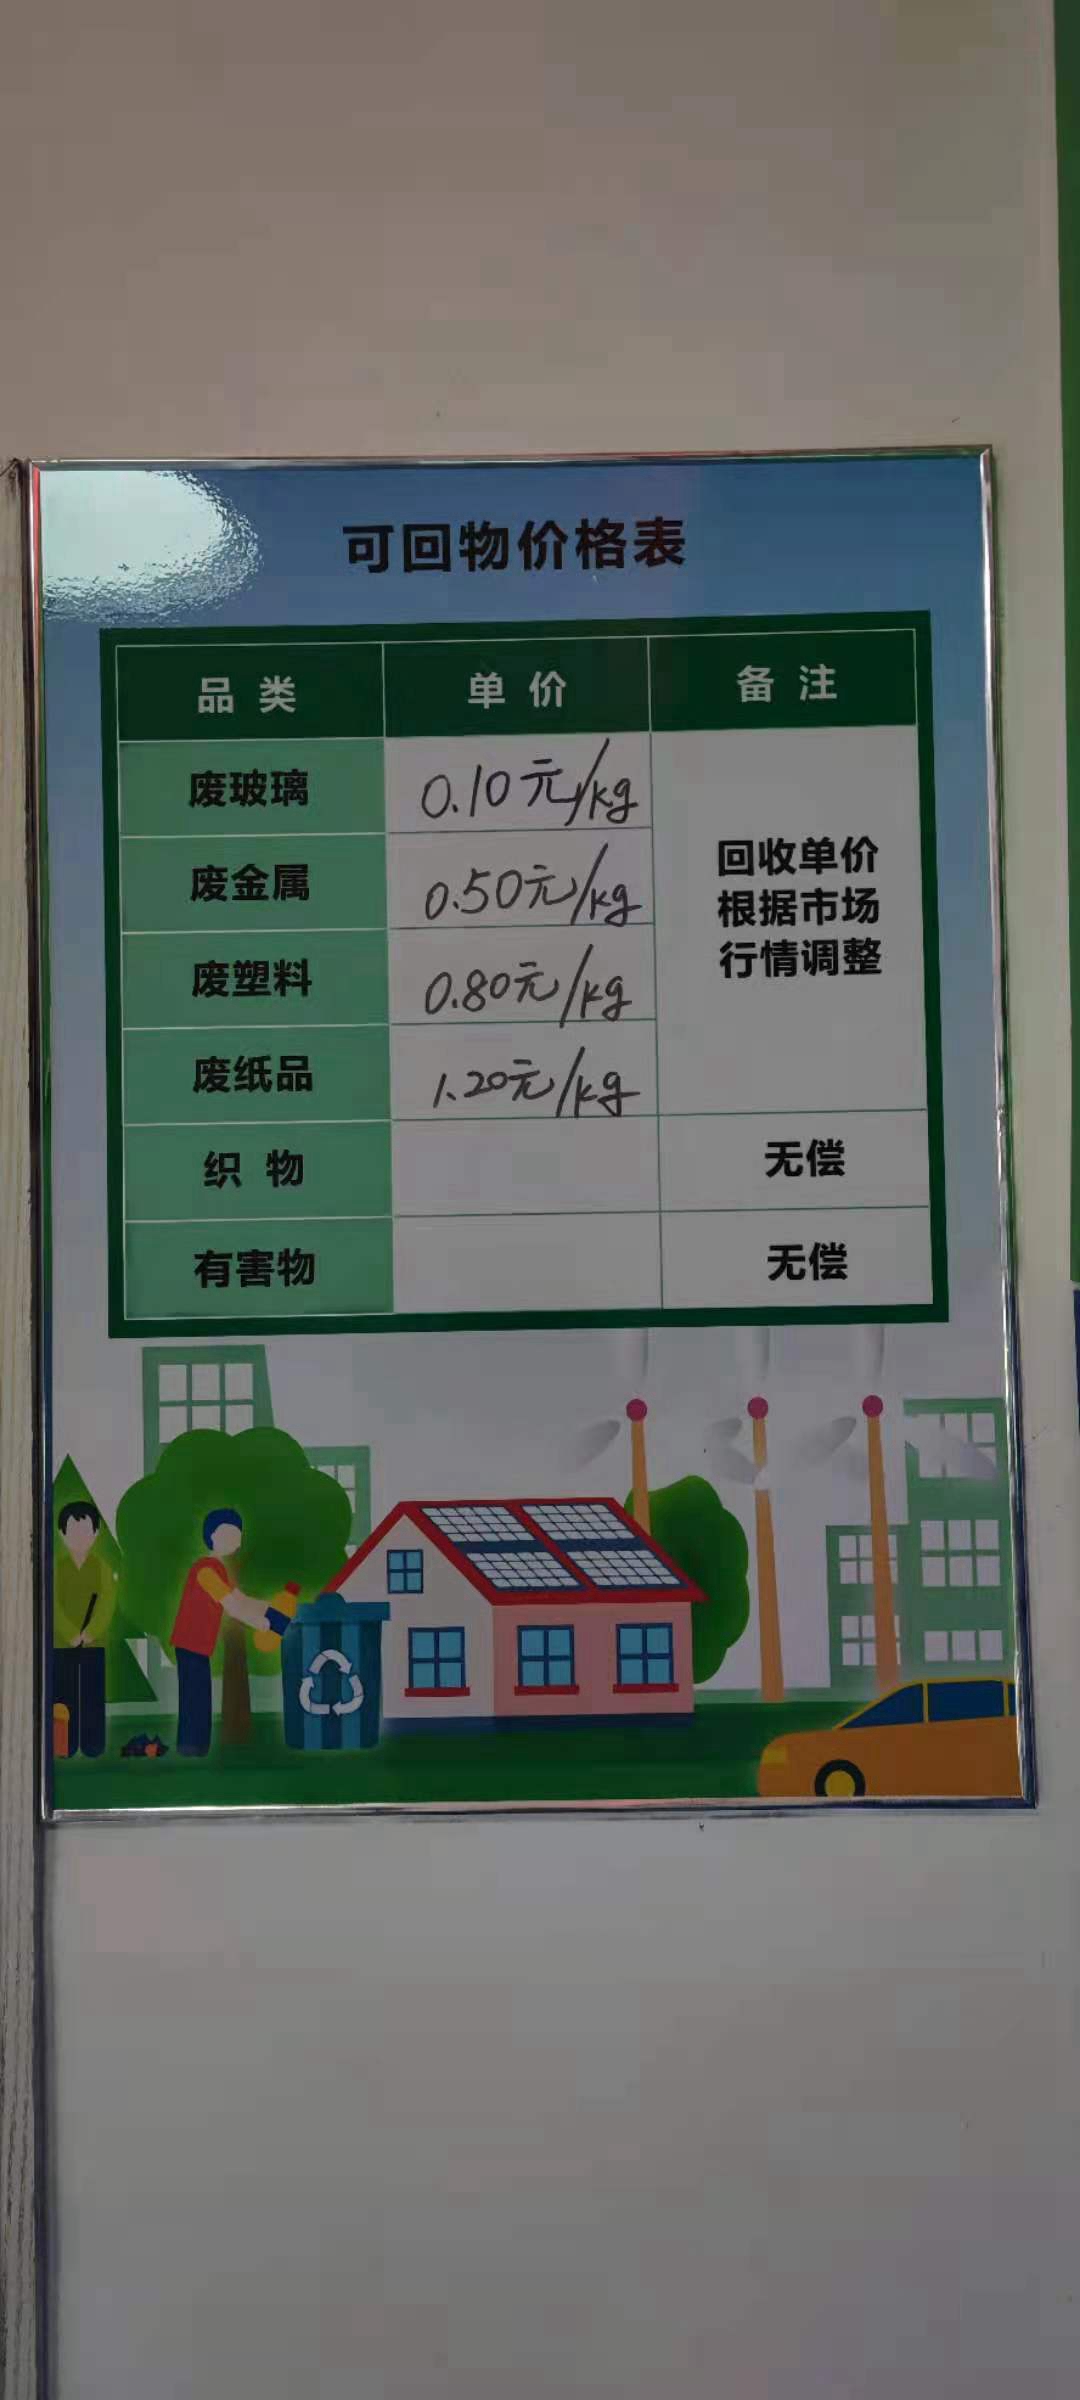 可回物价格表
品类 单价 备注
废玻璃 0.10元/kg
废金属 0.50元/kg
废塑料 0.80元/kg
废纸品 1.20元/kg
回收单价
根据市场
行情调整
织物 无偿
有害物 无偿